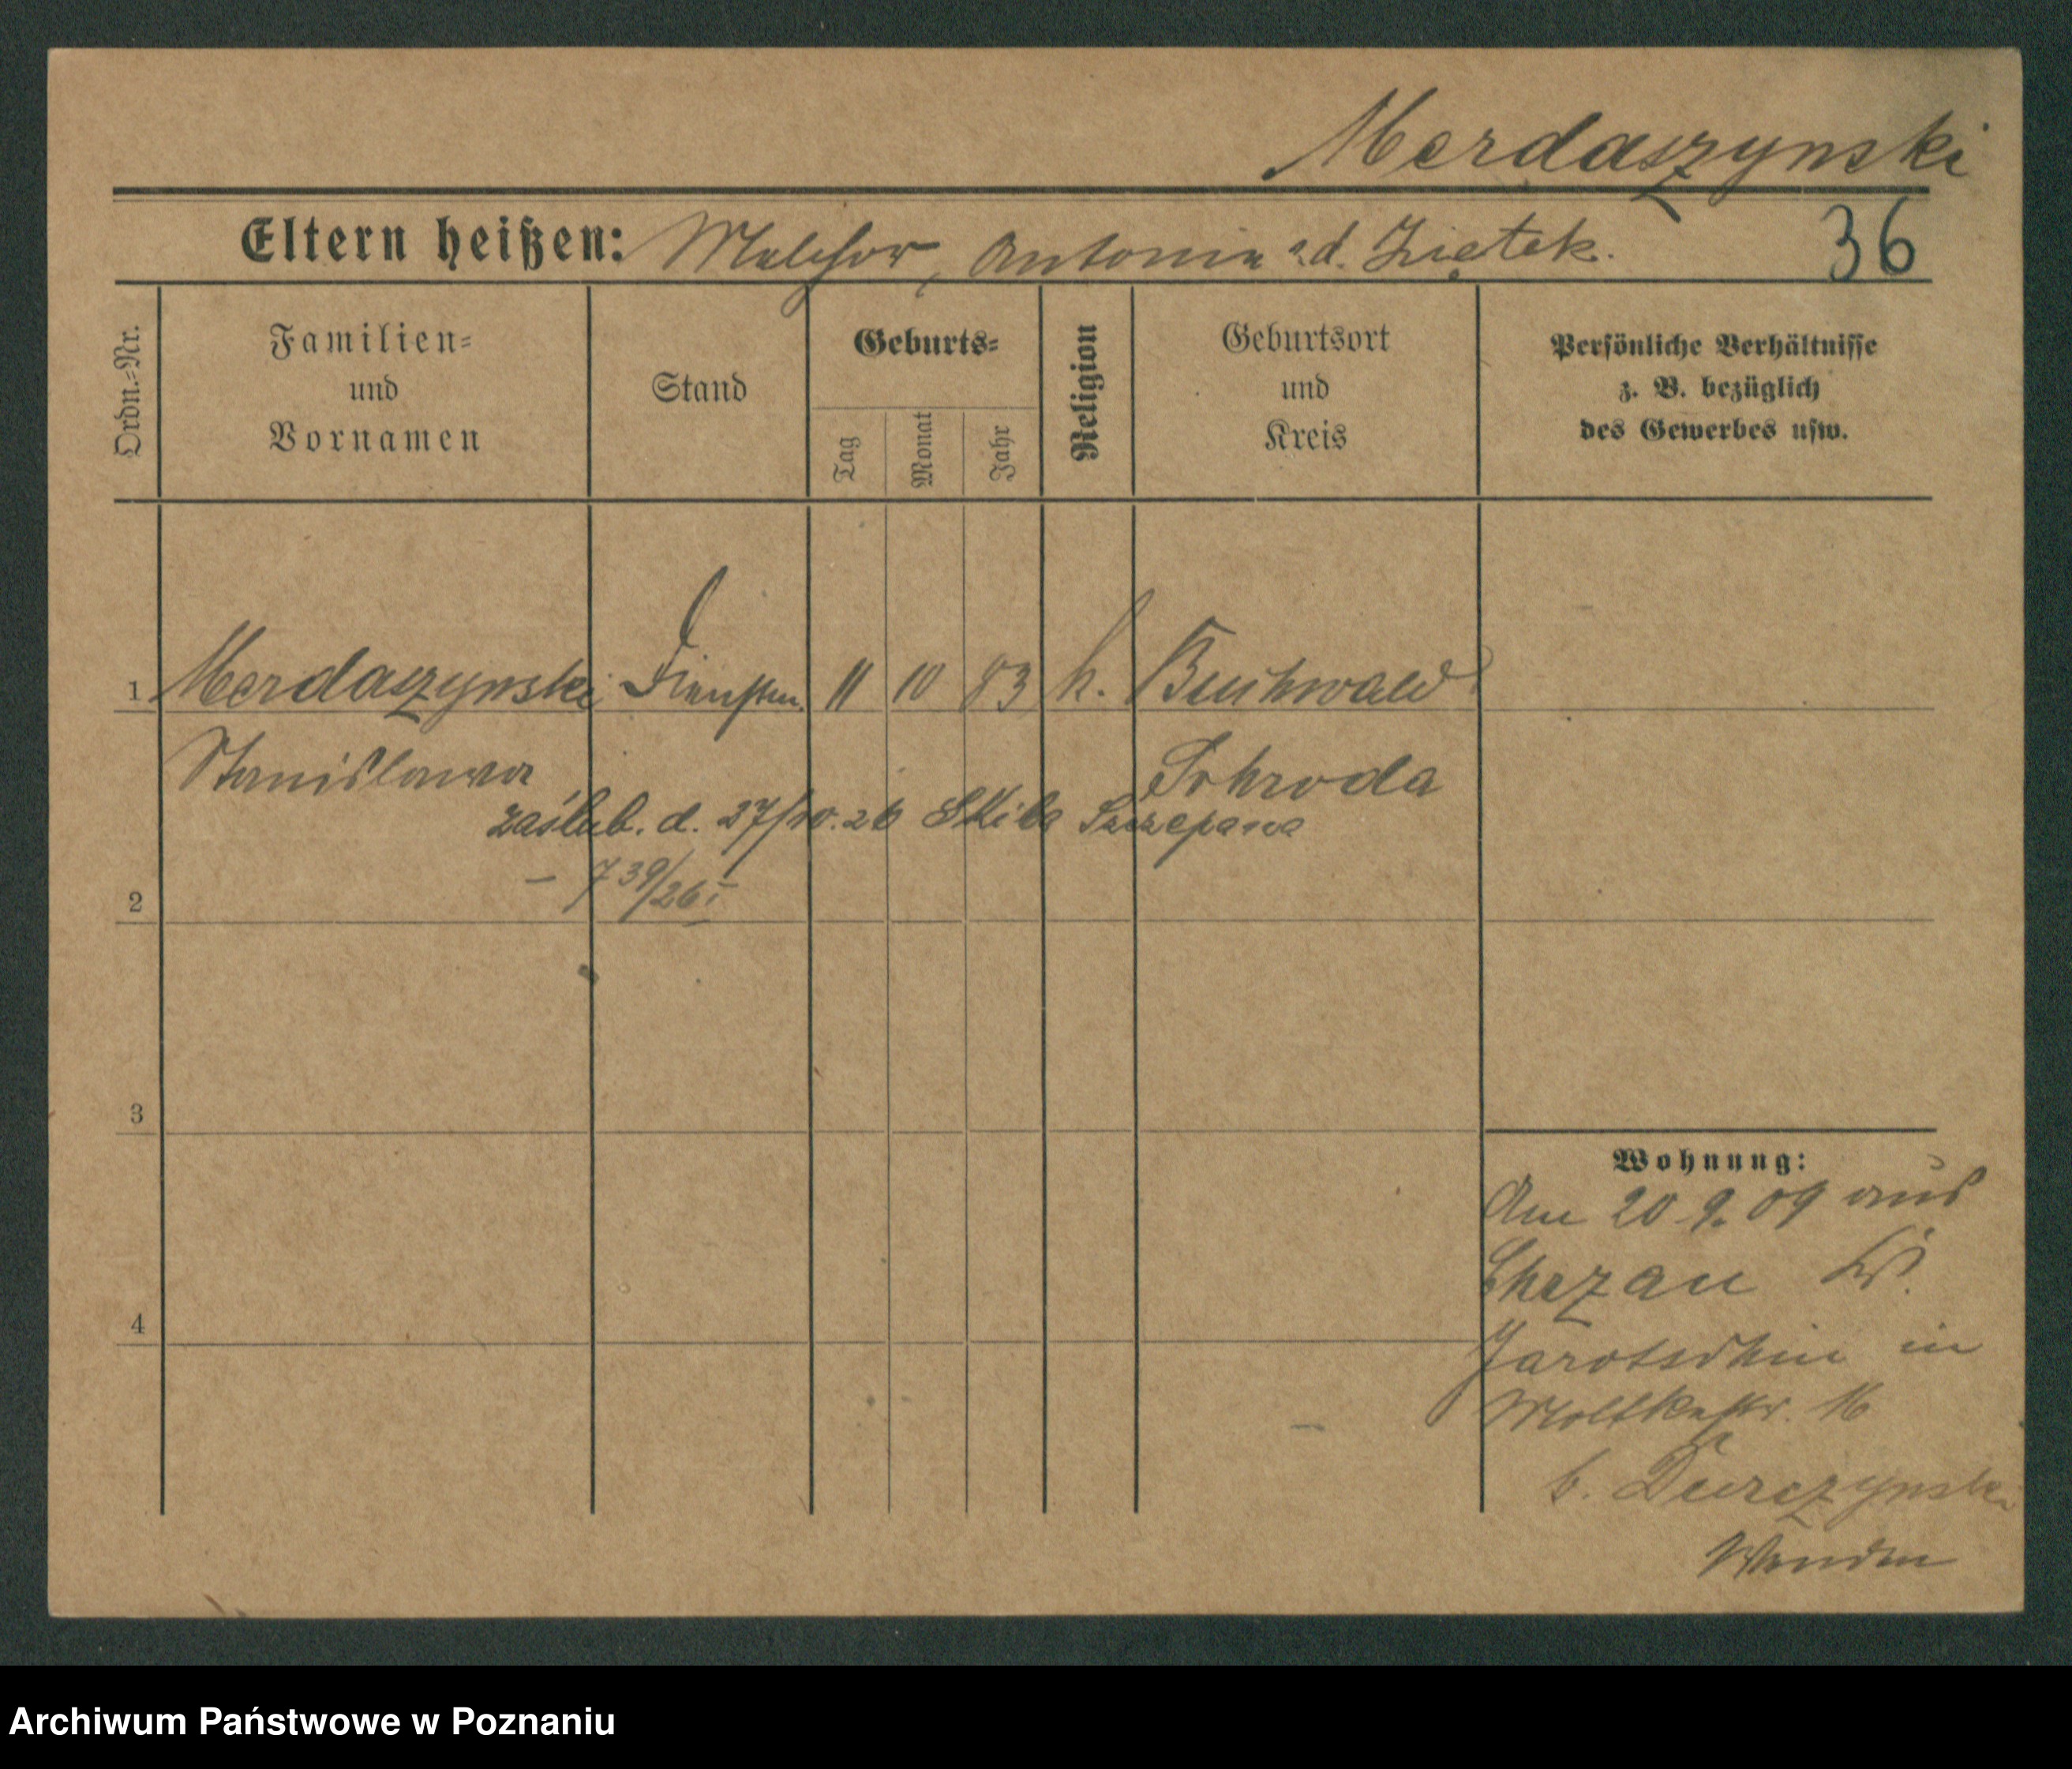 Merdaszynski
Eltern heißen: Melchior, Antonie Ziętek.
36
Ordn.=Nr.
Familien=
und
Vornamen
Stand
Geburts=
Tag
Monat
Jahr
Religion
Geburtsort
und
Kreis
Persönliche Verhältnisse
z. B. bezüglich
des Gewerbes usw.
1 Merdaszynski 11 10 83 k. Buchwald
Stanislawa Schroda
zaślub. d. 27/10.26 Skiba Szczepana
– 739/26
2
3
4
Wohnung:
Am 20 9. 09 aus
Chrzan Kr.
Jarotschin in
Moltkestr. 16
b. Durczynski
Archiwum Państwowe w Poznaniu